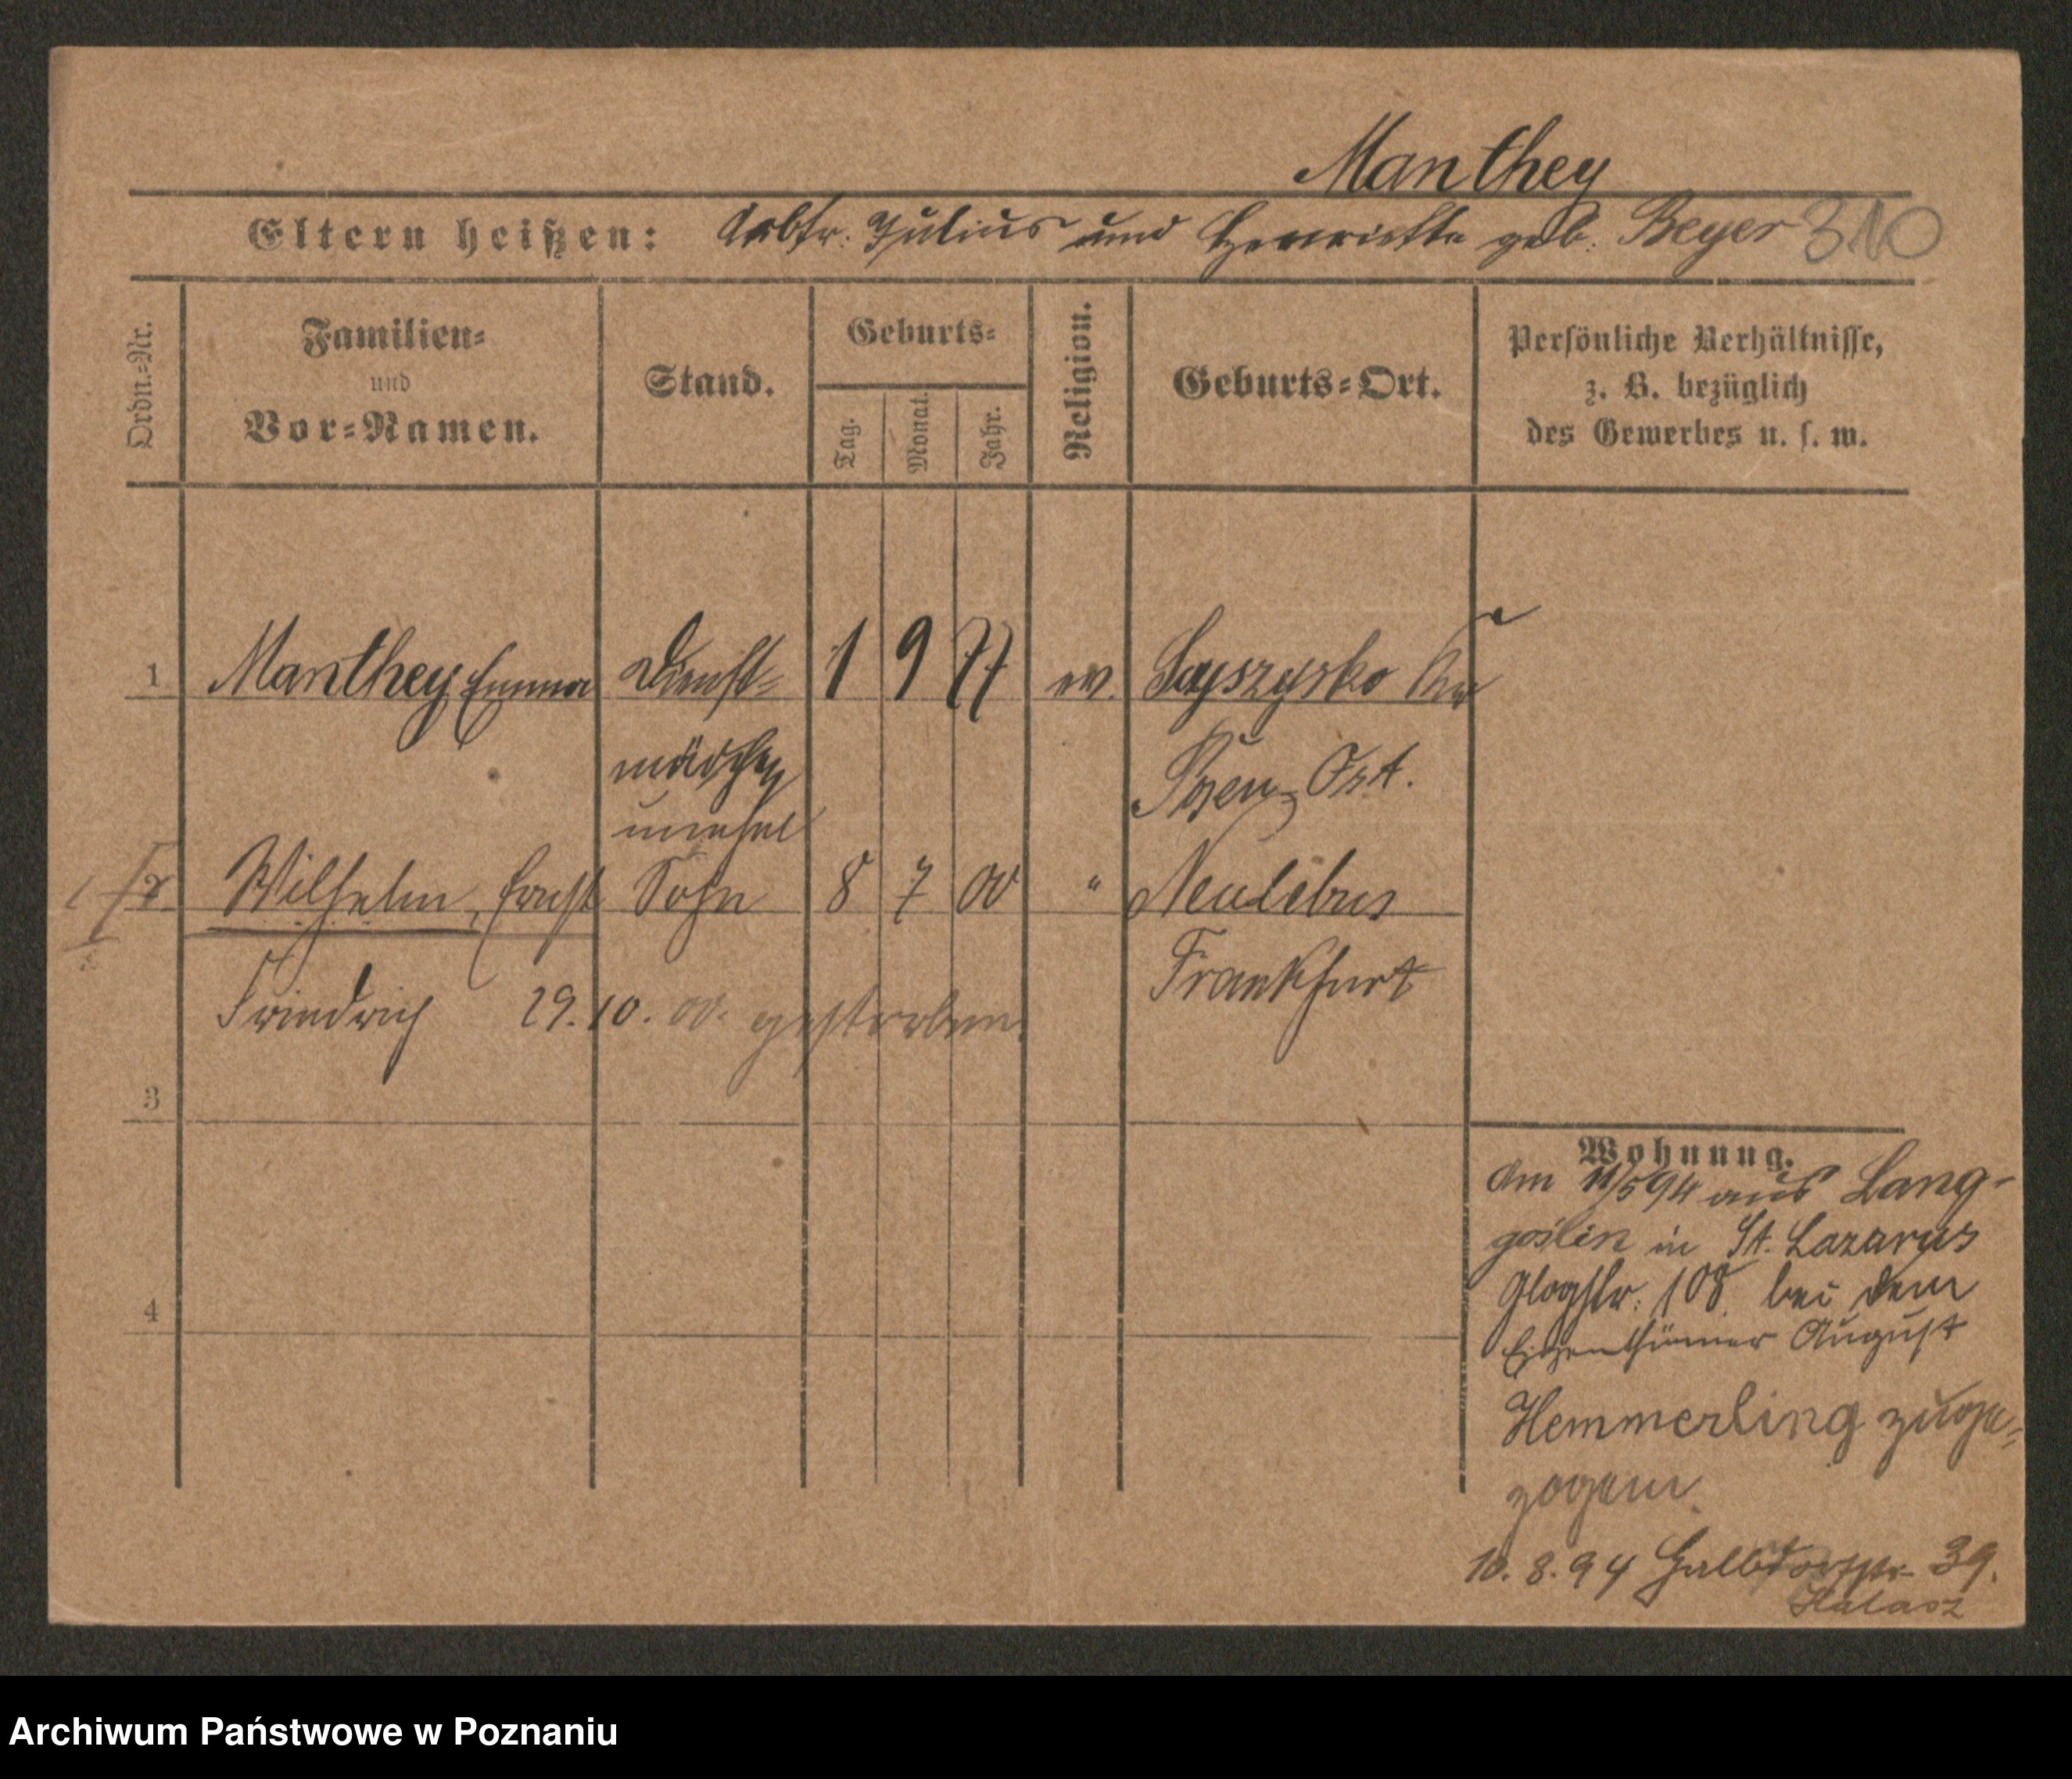 Manthey
Eltern heißen: Arbtr. Julius und Henriette geb. Beyer 310
Ordn.-Nr.
Familien-
und
Vor-Namen.
Stand.
Geburts-
Tag.
Monat.
Jahr.
Religion.
Geburts-Ort.
Persönliche Verhältnisse,
z. B. bezüglich
des Gewerbes u. s. w.
1 Manthey Emma Dienst- 1 9 77 ev.
mädchen
Posen Ost.
unehel
2 Wilhelm, Ernst Sohn 8 7 00 " Neulebus
Frankfurt
Friedrich 29. 10. 00. gestorben
3
4
Wohnung.
Am 11/5 94 aus Lang-
goslin in St. Lazarus
Glogstr. 108 bei dem
Eigenthümer August
Hemmerling zuge-
zogen
10. 8. 94 Halbdorfstr. 39.
Archiwum Państwowe w Poznaniu